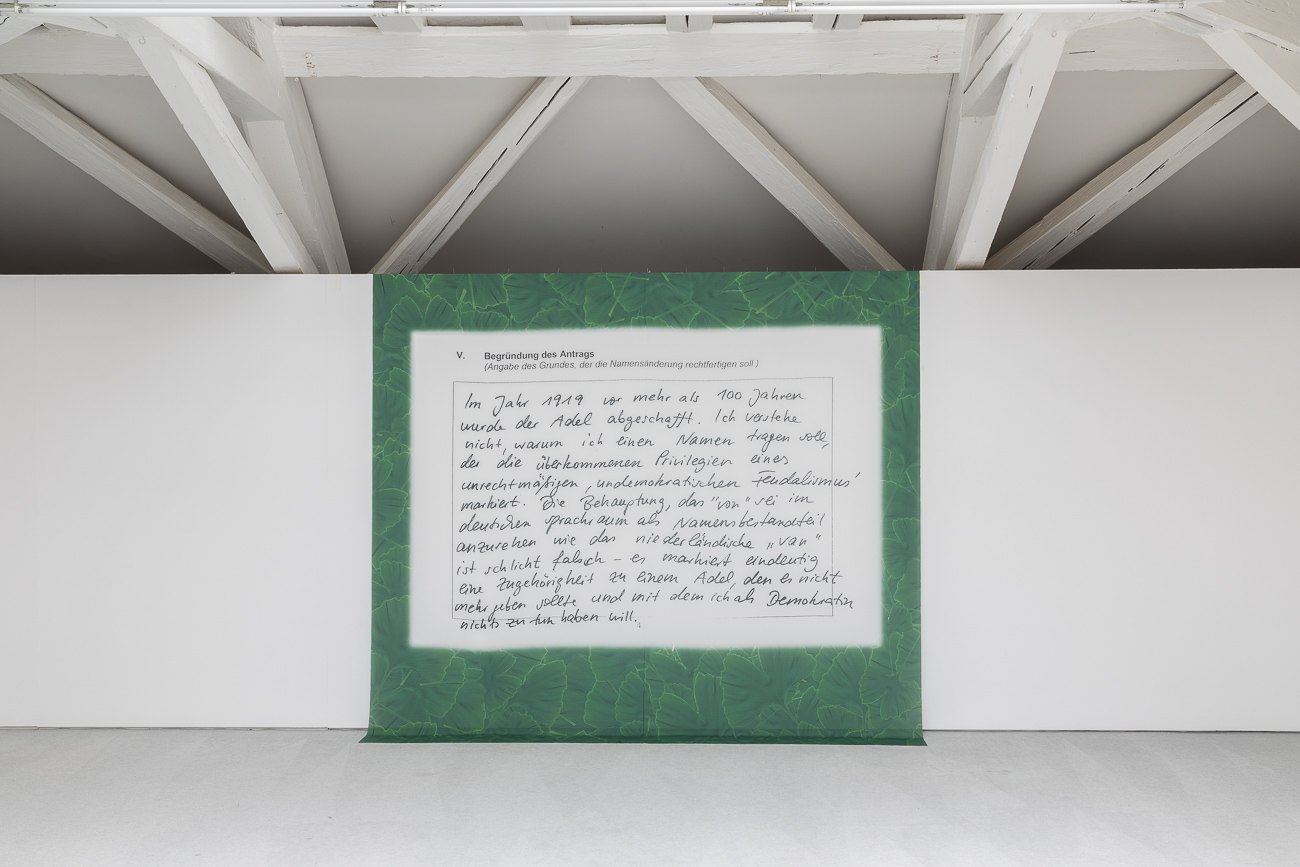 V. Begründung des Antrags
(Angabe des Grundes, der die Namensänderung rechtfertigen soll)
Im Jahr 1919 vor mehr als 100 Jahren
wurde der Adel abgeschafft. Ich verstehe
nicht, warum ich einen Namen tragen soll,
der die überkommenen Privilegien eines
unrechtmäßigen, undemokratischen Feudalismus'
markiert. Die Behauptung, das "von" sei im
deutschen Sprachraum als Namensbestandteil
anzusehen wie das niederländische „van"
ist schlicht falsch – es markiert eindeutig
eine Zugehörigkeit zu einem Adel, den es nicht
mehr geben sollte und mit dem ich als Demokratin
nichts zu tun haben will.